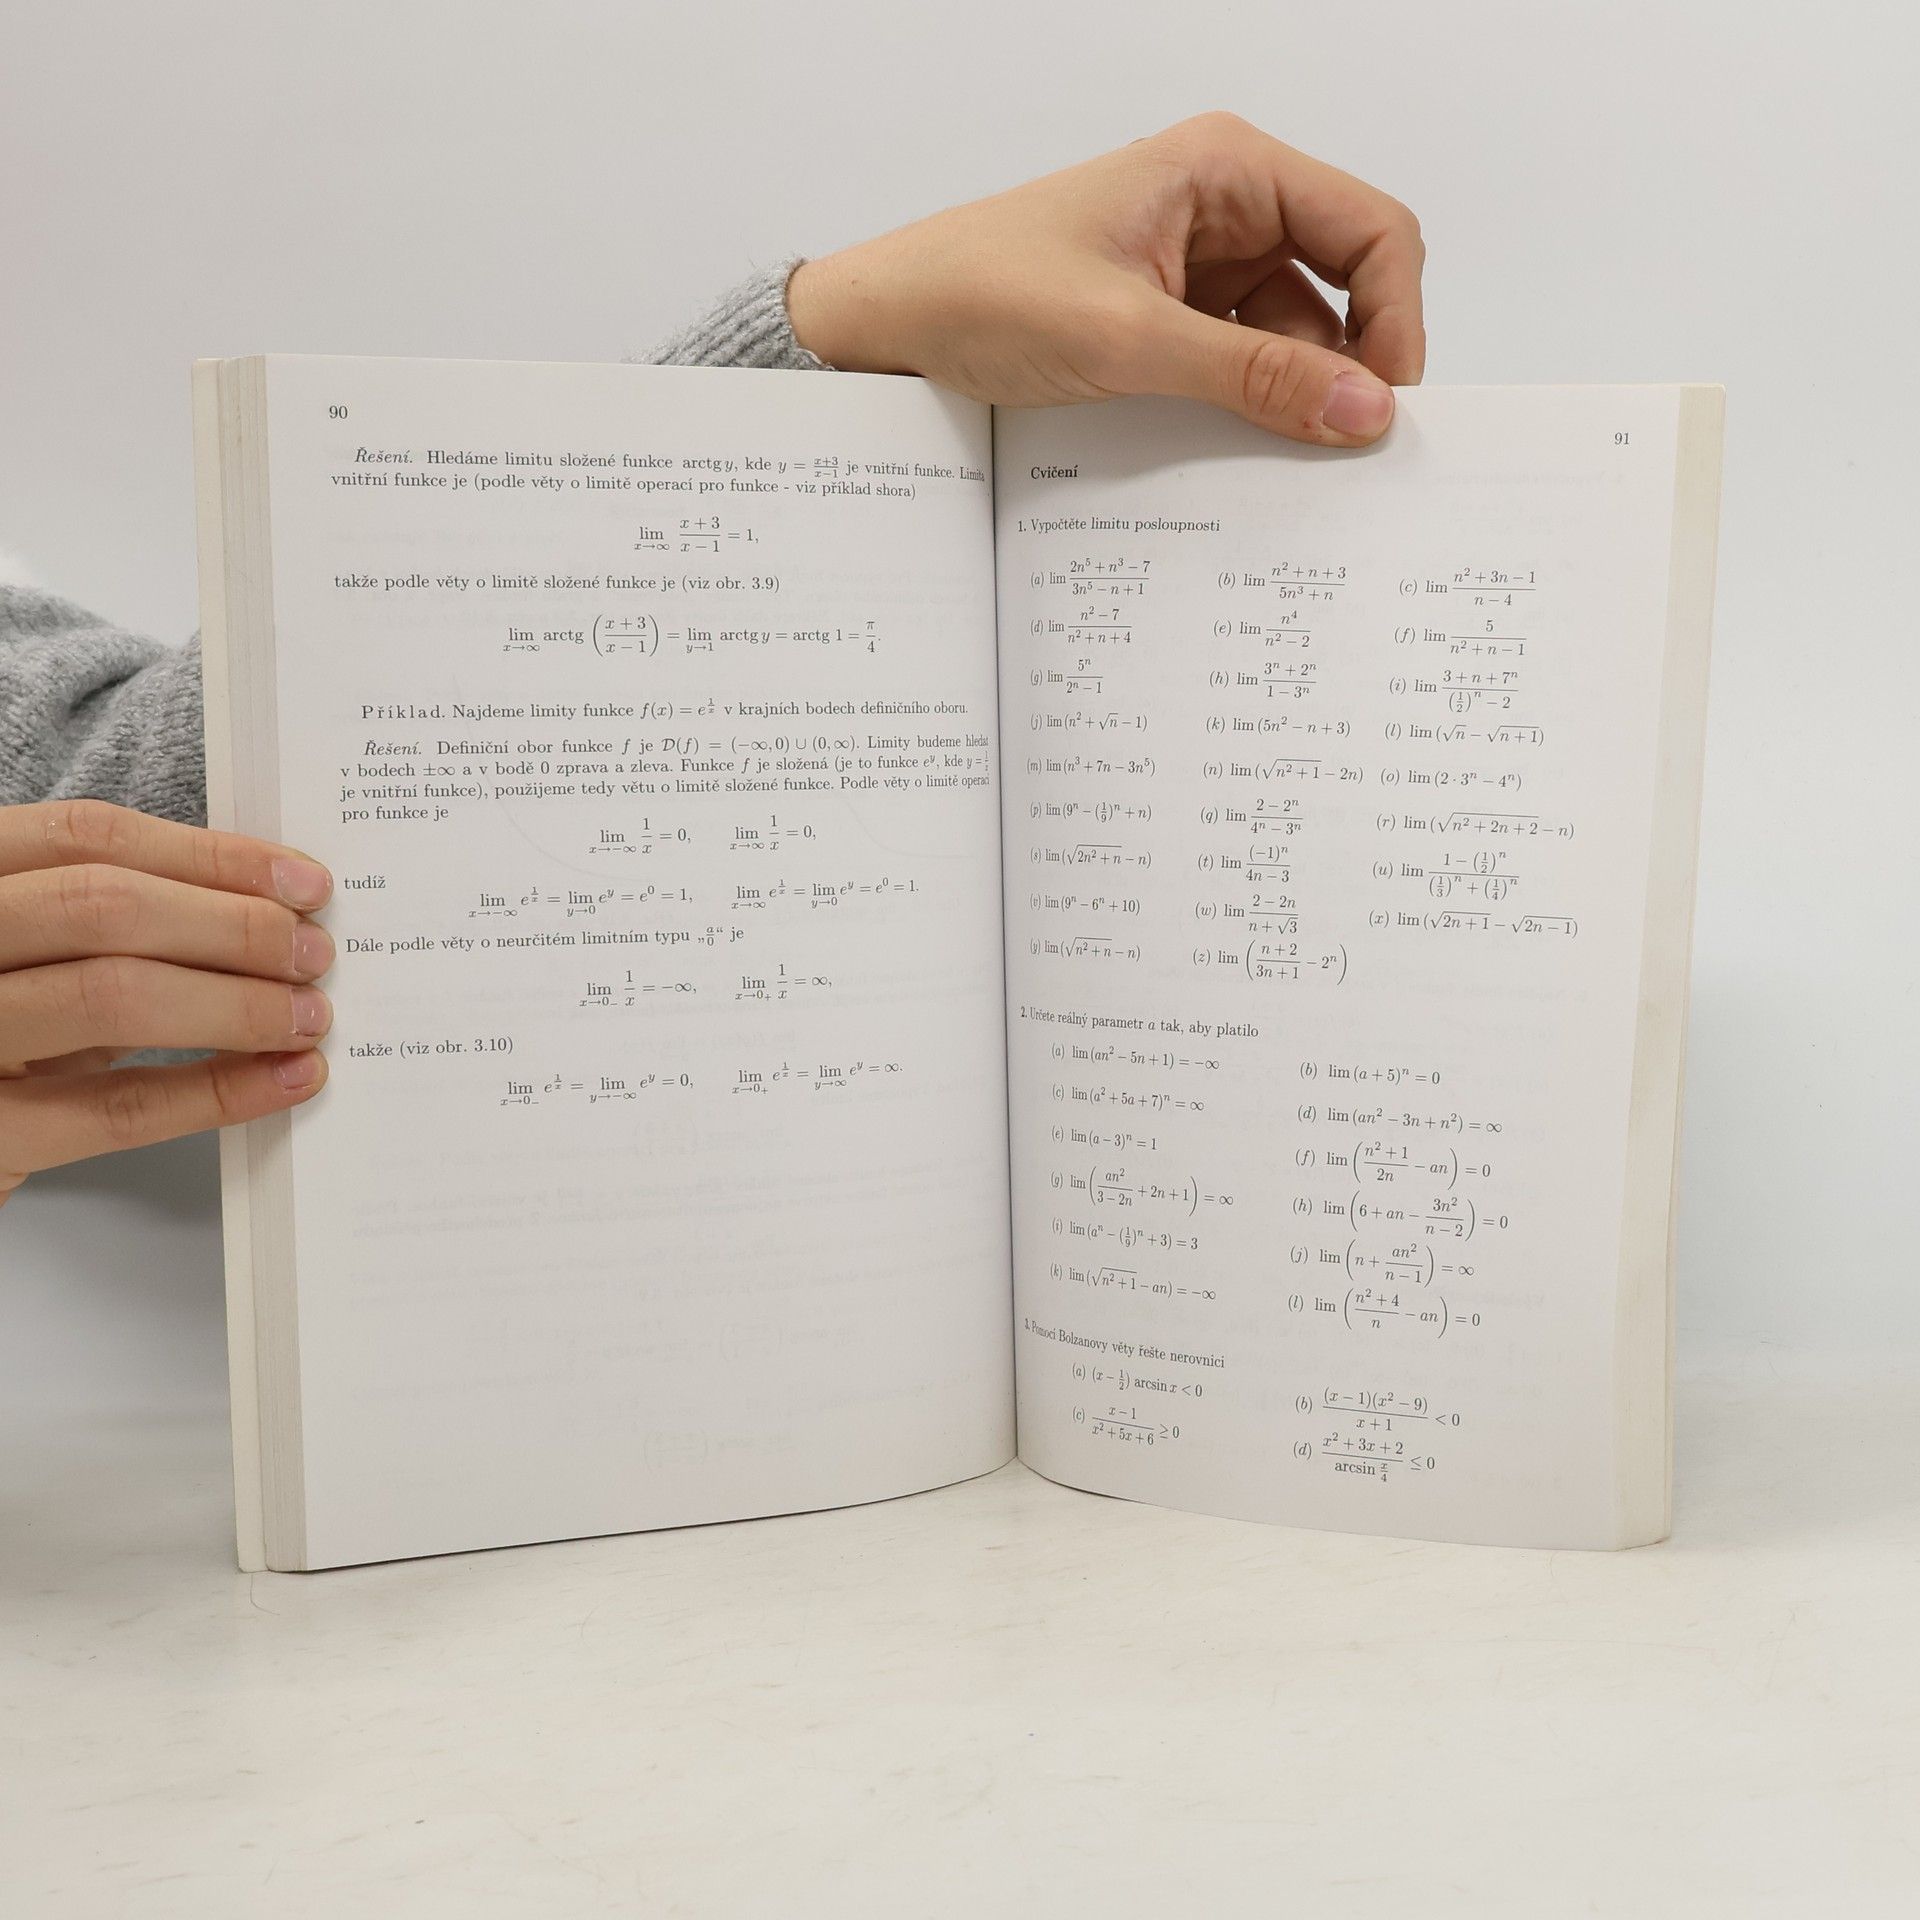 90
Řešení. Hledáme limitu složené funkce arctg y, kde y = \frac{x+3}{x−1} je vnitřní funkce. Limita
vnitřní funkce je (podle věty o limitě operací pro funkce - viz příklad shora)
lim_{x→∞} \frac{x+3}{x−1} = 1,
takže podle věty o limitě složené funkce je (viz obr. 3.9)
lim_{x→∞} arctg (\frac{x+3}{x−1}) = lim_{y→1} arctg y = arctg 1 = \frac{π}{4}.
Příklad. Najdeme limity funkce f(x) = e^{\frac{1}{x}} v krajních bodech definičního oboru.
Řešení. Definiční obor funkce f je D(f) = (−∞, 0) ∪ (0, ∞). Limity budeme hledat
v bodech ±∞ a v bodě 0 zprava a zleva. Funkce f je složená (je to funkce e^y, kde y = \frac{1}{x}
je vnitřní funkce), použijeme tedy větu o limitě složené funkce. Podle věty o limitě operací
pro funkce je
lim_{x→−∞} \frac{1}{x} = 0, lim_{x→∞} \frac{1}{x} = 0,
tudíž
lim_{x→−∞} e^{\frac{1}{x}} = lim_{y→0} e^y = e^0 = 1, lim_{x→∞} e^{\frac{1}{x}} = lim_{y→0} e^y = e^0 = 1.
Dále podle věty o neurčitém limitním typu „\frac{a}{0}“ je
lim_{x→0_−} \frac{1}{x} = −∞, lim_{x→0_+} \frac{1}{x} = ∞,
takže (viz obr. 3.10)
lim_{x→0_−} e^{\frac{1}{x}} = lim_{y→−∞} e^y = 0, lim_{x→0_+} e^{\frac{1}{x}} = lim_{y→∞} e^y = ∞.
91
Cvičení
1. Vypočtěte limitu posloupnosti
(a) lim \frac{2n^5 + n^3 − 7}{3n^5 − n + 1} (b) lim \frac{n^2 + n + 3}{5n^3 + n} (c) lim \frac{n^2 + 3n − 1}{n − 4}
(d) lim \frac{n^2 − 7}{n^2 + n + 4} (e) lim \frac{n^4}{n^2 − 2} (f) lim \frac{5}{n^2 + n − 1}
(g) lim \frac{5^n}{2^n − 1} (h) lim \frac{3^n + 2^n}{1 − 3^n} (i) lim \frac{3 + n + 7^n}{(\frac{1}{2})^n − 2}
(j) lim (n^2 + √n − 1) (k) lim (5n^2 − n + 3) (l) lim (√n − √{n + 1})
(m) lim (n^3 + 7n − 3n^5) (n) lim (√{n^2 + 1} − 2n) (o) lim (2 · 3^n − 4^n)
(p) lim (9^n − (\frac{1}{9})^n + n) (q) lim \frac{2 − 2^n}{4^n − 3^n} (r) lim (√{n^2 + 2n + 2} − n)
(s) lim (√{2n^2 + n} − n) (t) lim \frac{(−1)^n}{4n − 3} (u) lim \frac{1 − (\frac{1}{2})^n}{(\frac{1}{3})^n + (\frac{1}{4})^n}
(v) lim (9^n − 6^n + 10) (w) lim \frac{2 − 2n}{n + √3} (x) lim (√{2n + 1} − √{2n − 1})
(y) lim (√{n^2 + n} − n) (z) lim (\frac{n + 2}{3n + 1} − 2^n)
2. Určete reálný parametr a tak, aby platilo
(a) lim (an^2 − 5n + 1) = −∞ (b) lim (a + 5)^n = 0
(c) lim (a^2 + 5a + 7)^n = ∞ (d) lim (an^2 − 3n + n^2) = ∞
(e) lim (a − 3)^n = 1 (f) lim (\frac{n^2 + 1}{2n} − an) = 0
(g) lim (\frac{an^2}{3 − 2n} + 2n + 1) = ∞ (h) lim (6 + an − \frac{3n^2}{n − 2}) = 0
(i) lim (a^n − (\frac{1}{9})^n + 3) = 3 (j) lim (n + \frac{an^2}{n − 1}) = ∞
(k) lim (√{n^2 + 1} − an) = −∞ (l) lim (\frac{n^2 + 4}{n} − an) = 0
3. Pomocí Bolzanovy věty řešte nerovnici
(a) (x − \frac{1}{2}) arcsin x < 0 (b) \frac{(x − 1)(x^2 − 9)}{x + 1} < 0
(c) \frac{x − 1}{x^2 + 5x + 6} ≥ 0 (d) \frac{x^2 + 3x + 2}{arcsin \frac{x}{4}} ≤ 0